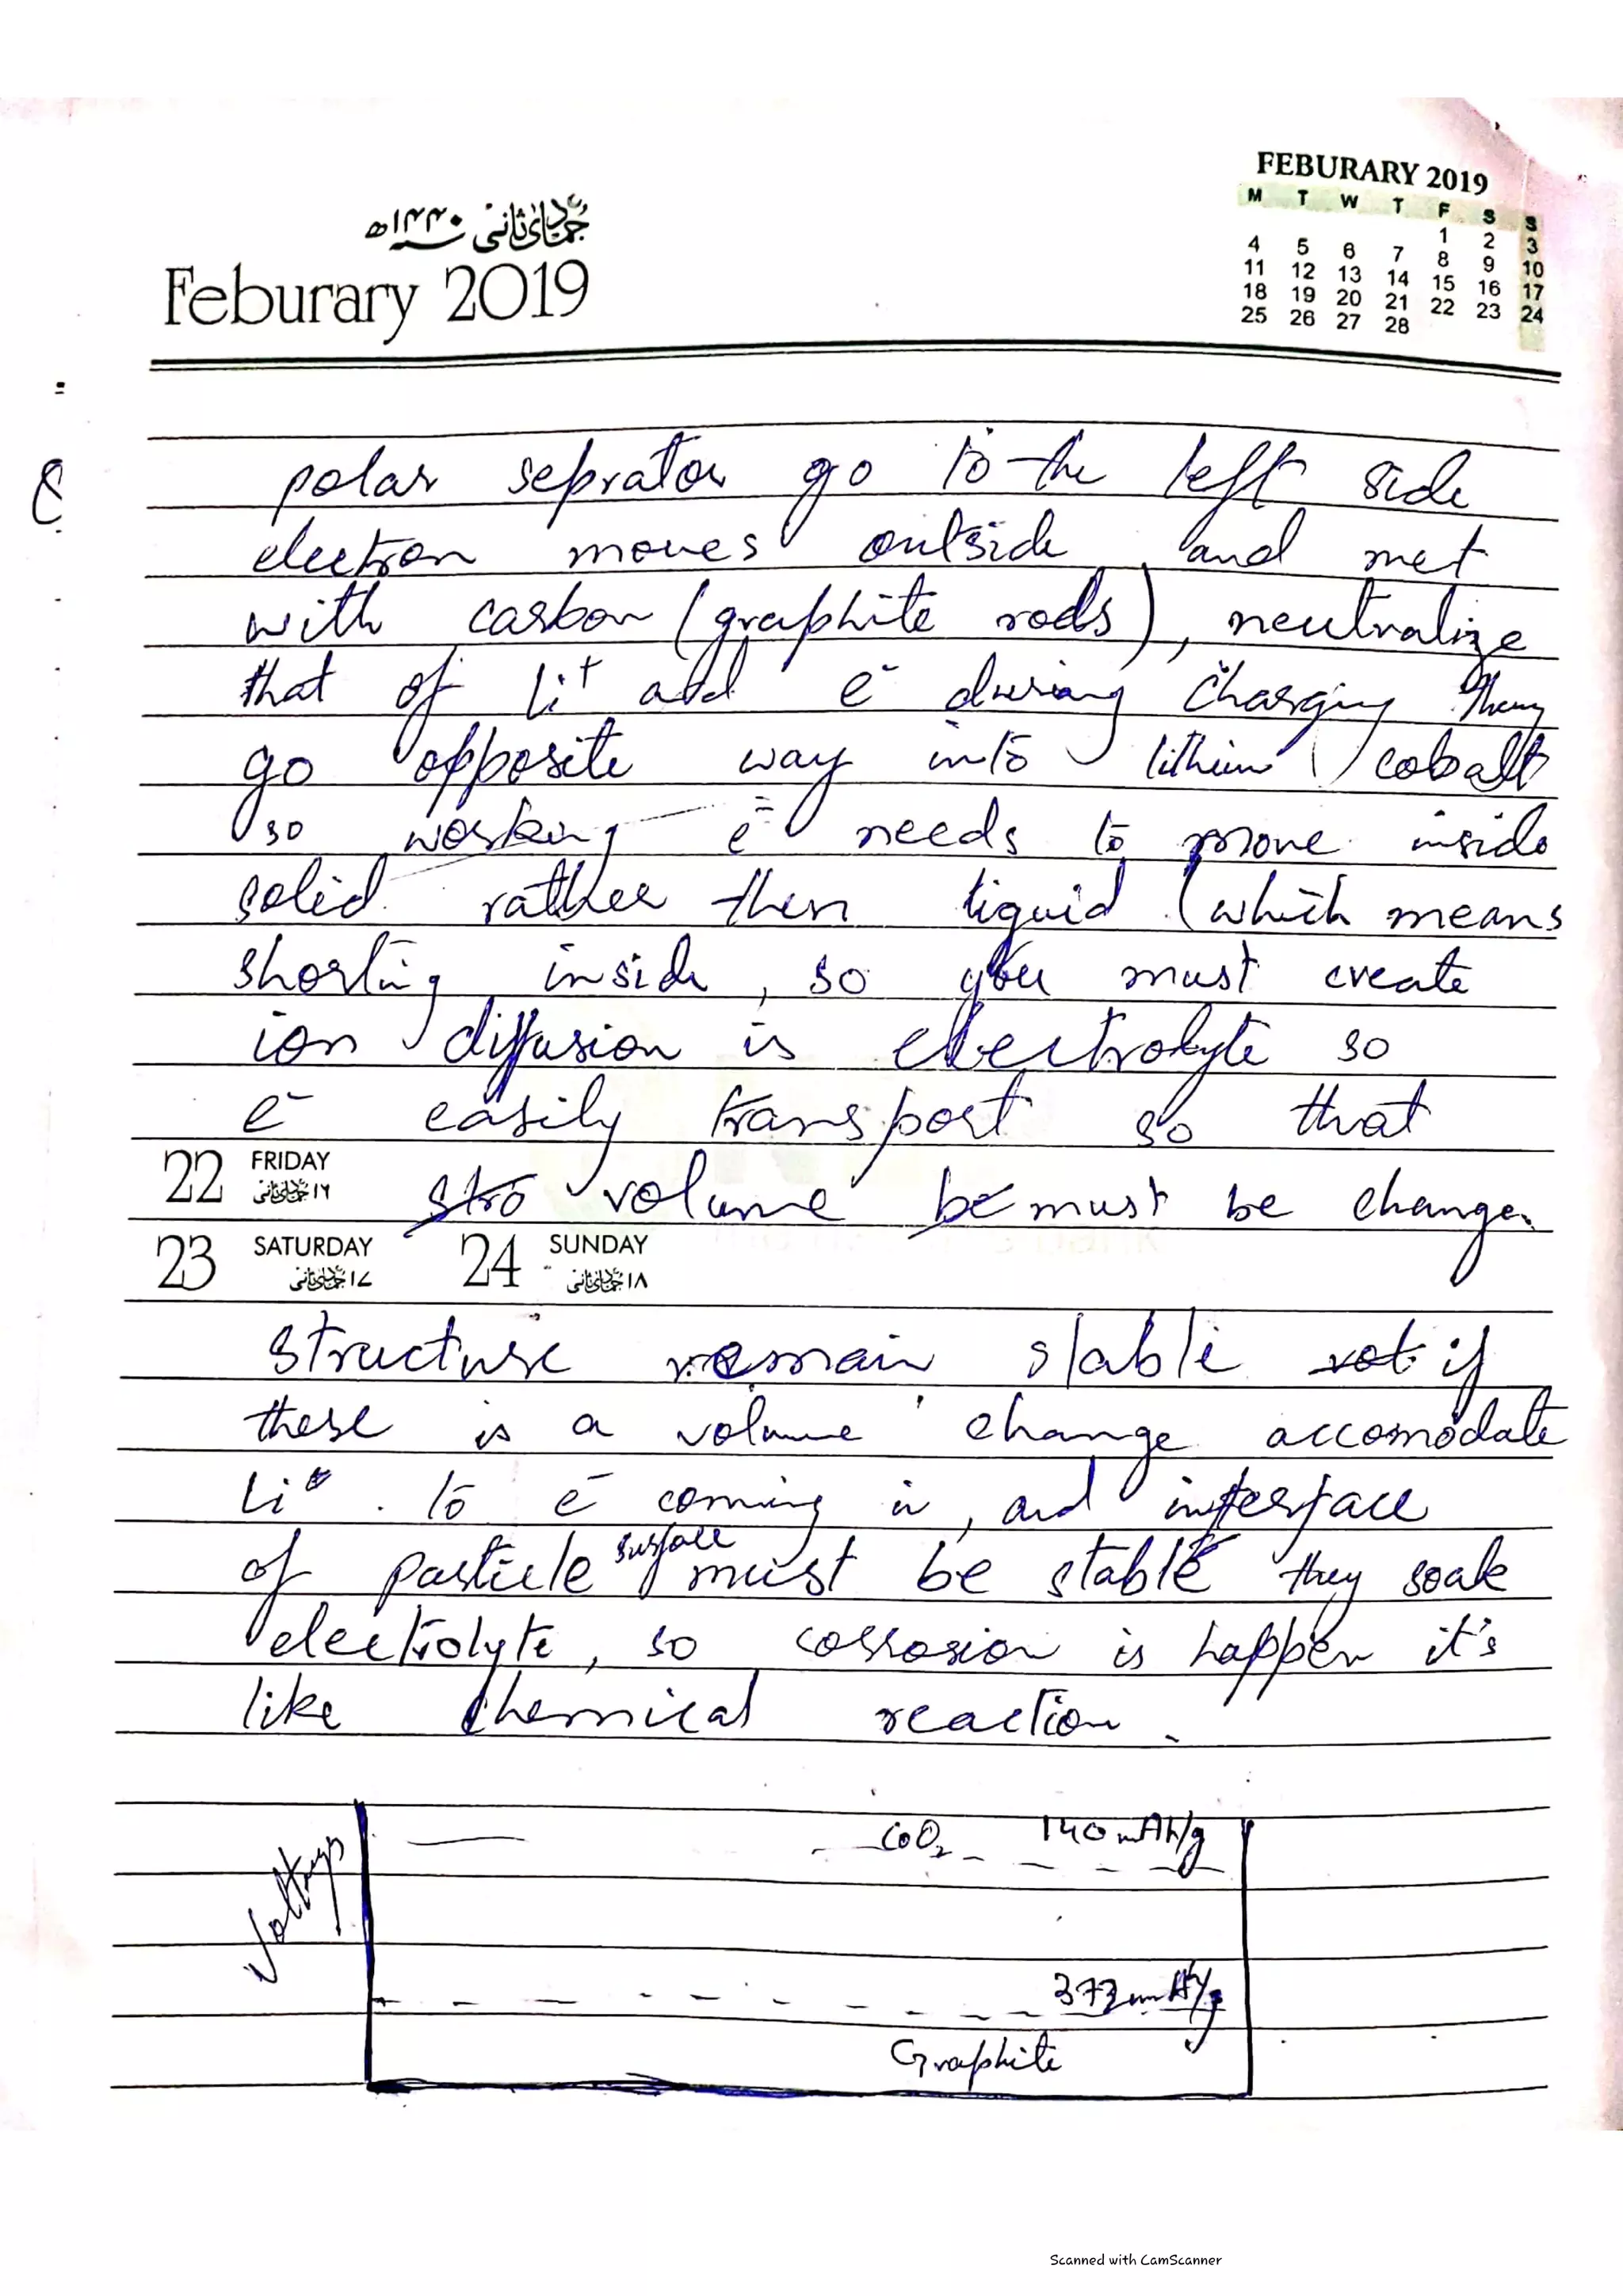 FEBURARY 2019
M T W T F S S
1 2 3
4 5 6 7 8 9 10
11 12 13 14 15 16 17
18 19 20 21 22 23 24
25 26 27 28
جمادی ثانی ۱۴۴۰ھ
Feburary 2019
polar seprator go to the left side
electron moves outside and met
with carbon (graphite rods), neutralize
that of Li+ and e- during Charging they
go opposite way into lithium cobalt
so working e- needs to move inside
solid rather then liquid (which means
shorting inside, so you must create
ion diffusion is electrolyte so
e- easily transport so that
22 FRIDAY
۱۶ جمادی ثانی
stro volume be must be change.
23 SATURDAY 24 SUNDAY
۱۷ جمادی ثانی ۱۸ جمادی ثانی
structure remain stable not if
there is a volume change accomodate
Li+ to e- coming in, and interface
of particle surface must be stable they soak
electrolyte, so corrosion is happen it's
like chemical reaction.
CoO2 140 mAh/g
Voltage
373 mAh/g
Graphite
Scanned with CamScanner